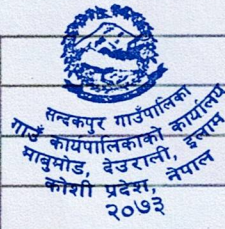 सन्दकपुर गाउँपालिका
गाउँ कार्यपालिकाको कार्यालय
माबुमोड, देउराली, इलाम
कोशी प्रदेश, नेपाल
२०७३